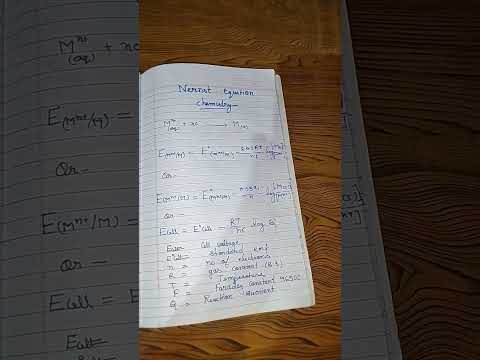 Nernst equation
chemistry
Mn+(aq) + ne ⟶ M(s)
E(Mn+/M) = E°(Mn+/M) - 2.303RT/nF log [M]/[Mn+]
Or -
E(Mn+/M) = E°(Mn+/M) - /n log [M(s)]/[Mn+]
Or -
Ecell = E°cell - RT/nF log Q
Ecell = Cell voltage
E°cell = standard Emf
n = no of electrons
R = gas constant (8.3)
T = Temperature
F = faraday constant 96500
Q = Reaction Quotient
Mn+(aq) + ne
E(Mn+/M) =
Or -
E(Mn+/M) =
Or -
Ecell =
Ecell =
E°cell =
n =